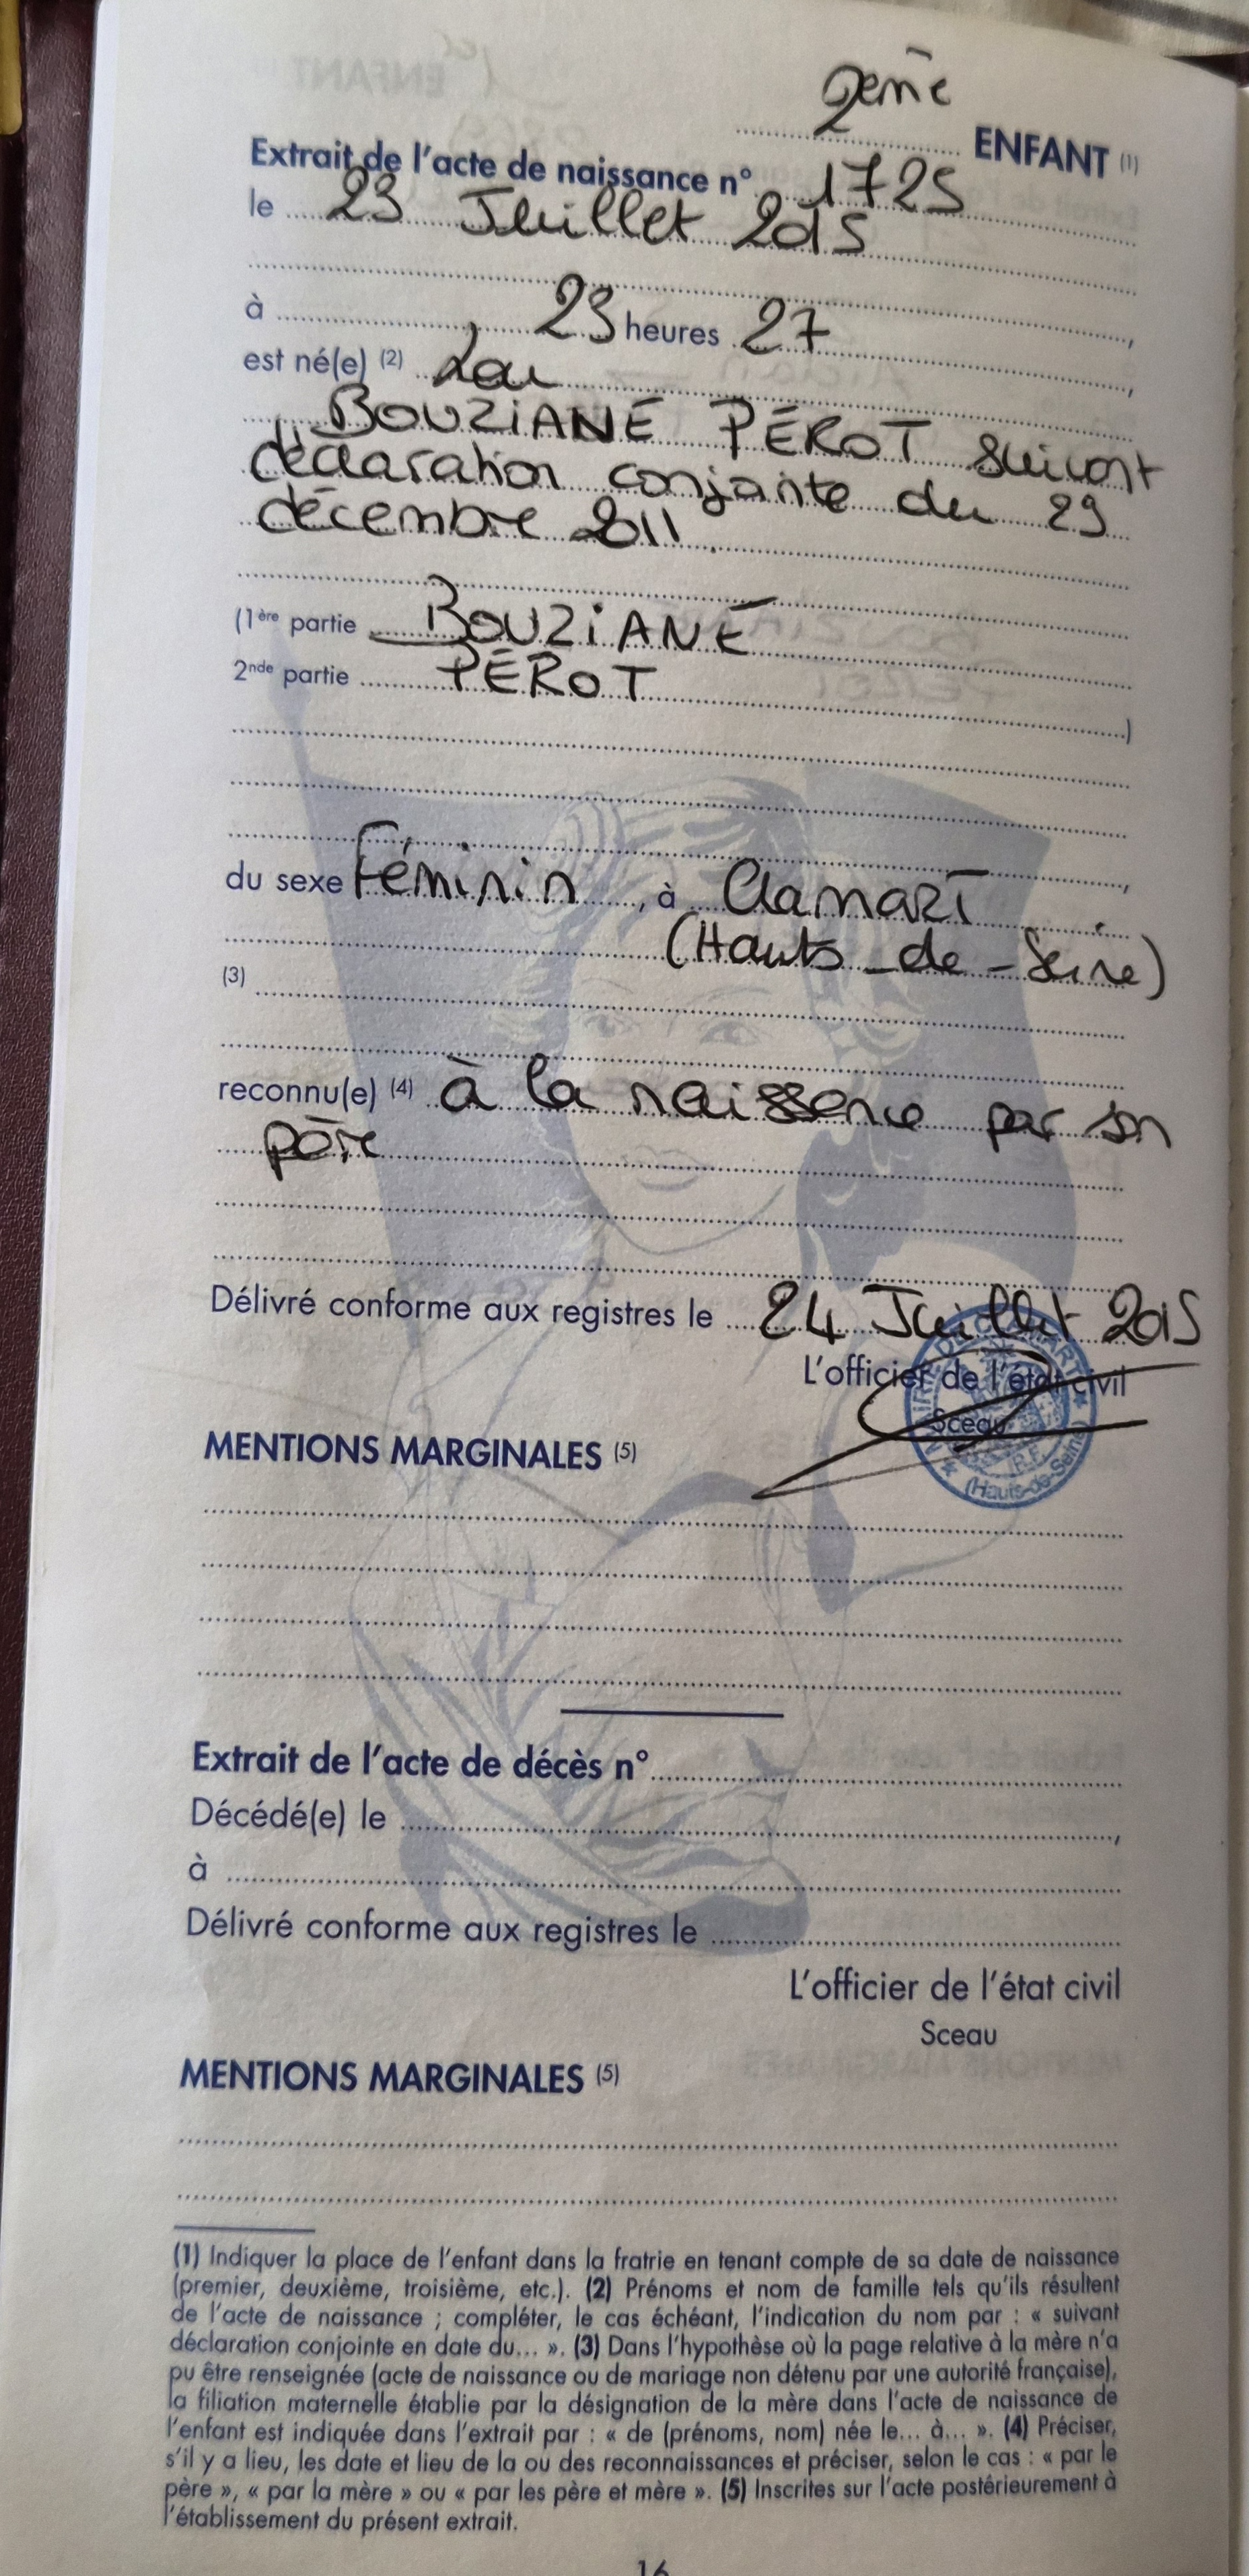 2ème ENFANT (1)
Extrait de l'acte de naissance n° 1725
le 23 Juillet 2015
à , 23 heures 27 ,
est né(e) (2) Lou ,
BOUZIANE PÉROT suivant
déclaration conjointe du 29
décembre 2011.
(1ère partie BOUZIANE
2nde partie PÉROT
)
du sexe Féminin , à Clamart ,
(Hauts-de-Seine)
(3)
reconnu(e) (4) à la naissance par son
père
Délivré conforme aux registres le 24 Juillet 2015
L'officier de l'état civil
Sceau
(Hauts-de-Seine)
MENTIONS MARGINALES (5)
Extrait de l'acte de décès n°
Décédé(e) le ,
à
Délivré conforme aux registres le
L'officier de l'état civil
Sceau
MENTIONS MARGINALES (5)
(1) Indiquer la place de l'enfant dans la fratrie en tenant compte de sa date de naissance
(premier, deuxième, troisième, etc.). (2) Prénoms et nom de famille tels qu'ils résultent
de l'acte de naissance ; compléter, le cas échéant, l'indication du nom par : « suivant
déclaration conjointe en date du... ». (3) Dans l'hypothèse où la page relative à la mère n'a
pu être renseignée (acte de naissance ou de mariage non détenu par une autorité française),
la filiation maternelle établie par la désignation de la mère dans l'acte de naissance de
l'enfant est indiquée dans l'extrait par : « de (prénoms, nom) née le... à... ». (4) Préciser,
s'il y a lieu, les date et lieu de la ou des reconnaissances et préciser, selon le cas : « par le
père », « par la mère » ou « par les père et mère ». (5) Inscrites sur l'acte postérieurement à
l'établissement du présent extrait.
16